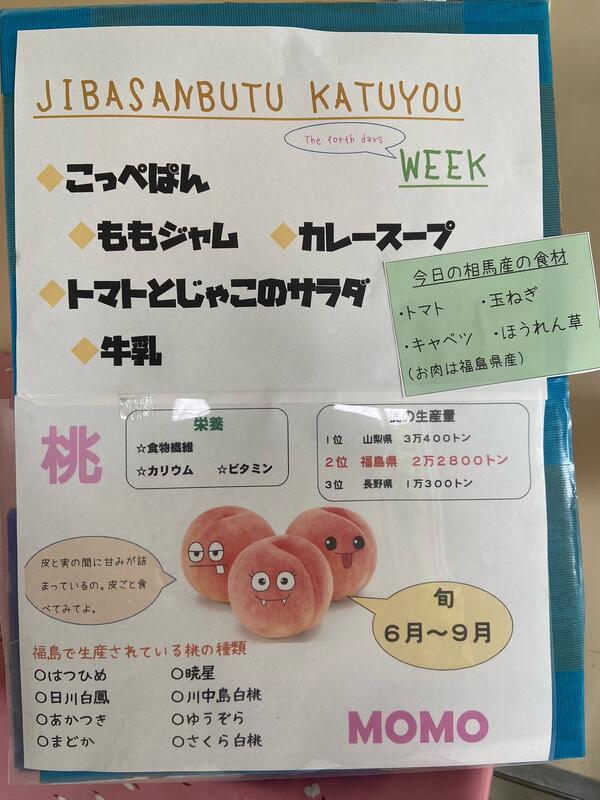 JIBASANBUTU KATUYOU
The forth days
WEEK
◆こっぺぱん
◆ももジャム ◆カレースープ
◆トマトとじゃこのサラダ
◆牛乳
今日の相馬産の食材
・トマト ・玉ねぎ
・キャベツ ・ほうれん草
(お肉は福島県産)
桃
栄養
☆食物繊維
☆カリウム ☆ビタミン
の生産量
1位 山梨県 3万400トン
2位 福島県 2万2800トン
3位 長野県 1万300トン
皮と実の間に甘みが詰
まっているの。皮ごと食
べてみてよ。
旬
6月~9月
福島で生産されている桃の種類
○はつひめ ○暁星
○日川白鳳 ○川中島白桃
○あかつき ○ゆうぞら
○まどか ○さくら白桃
MOMO